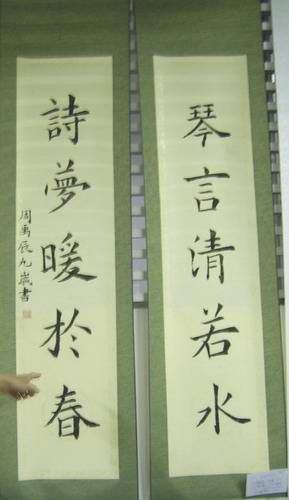 琴言清若水
詩夢暖於春
周禹辰九歲書